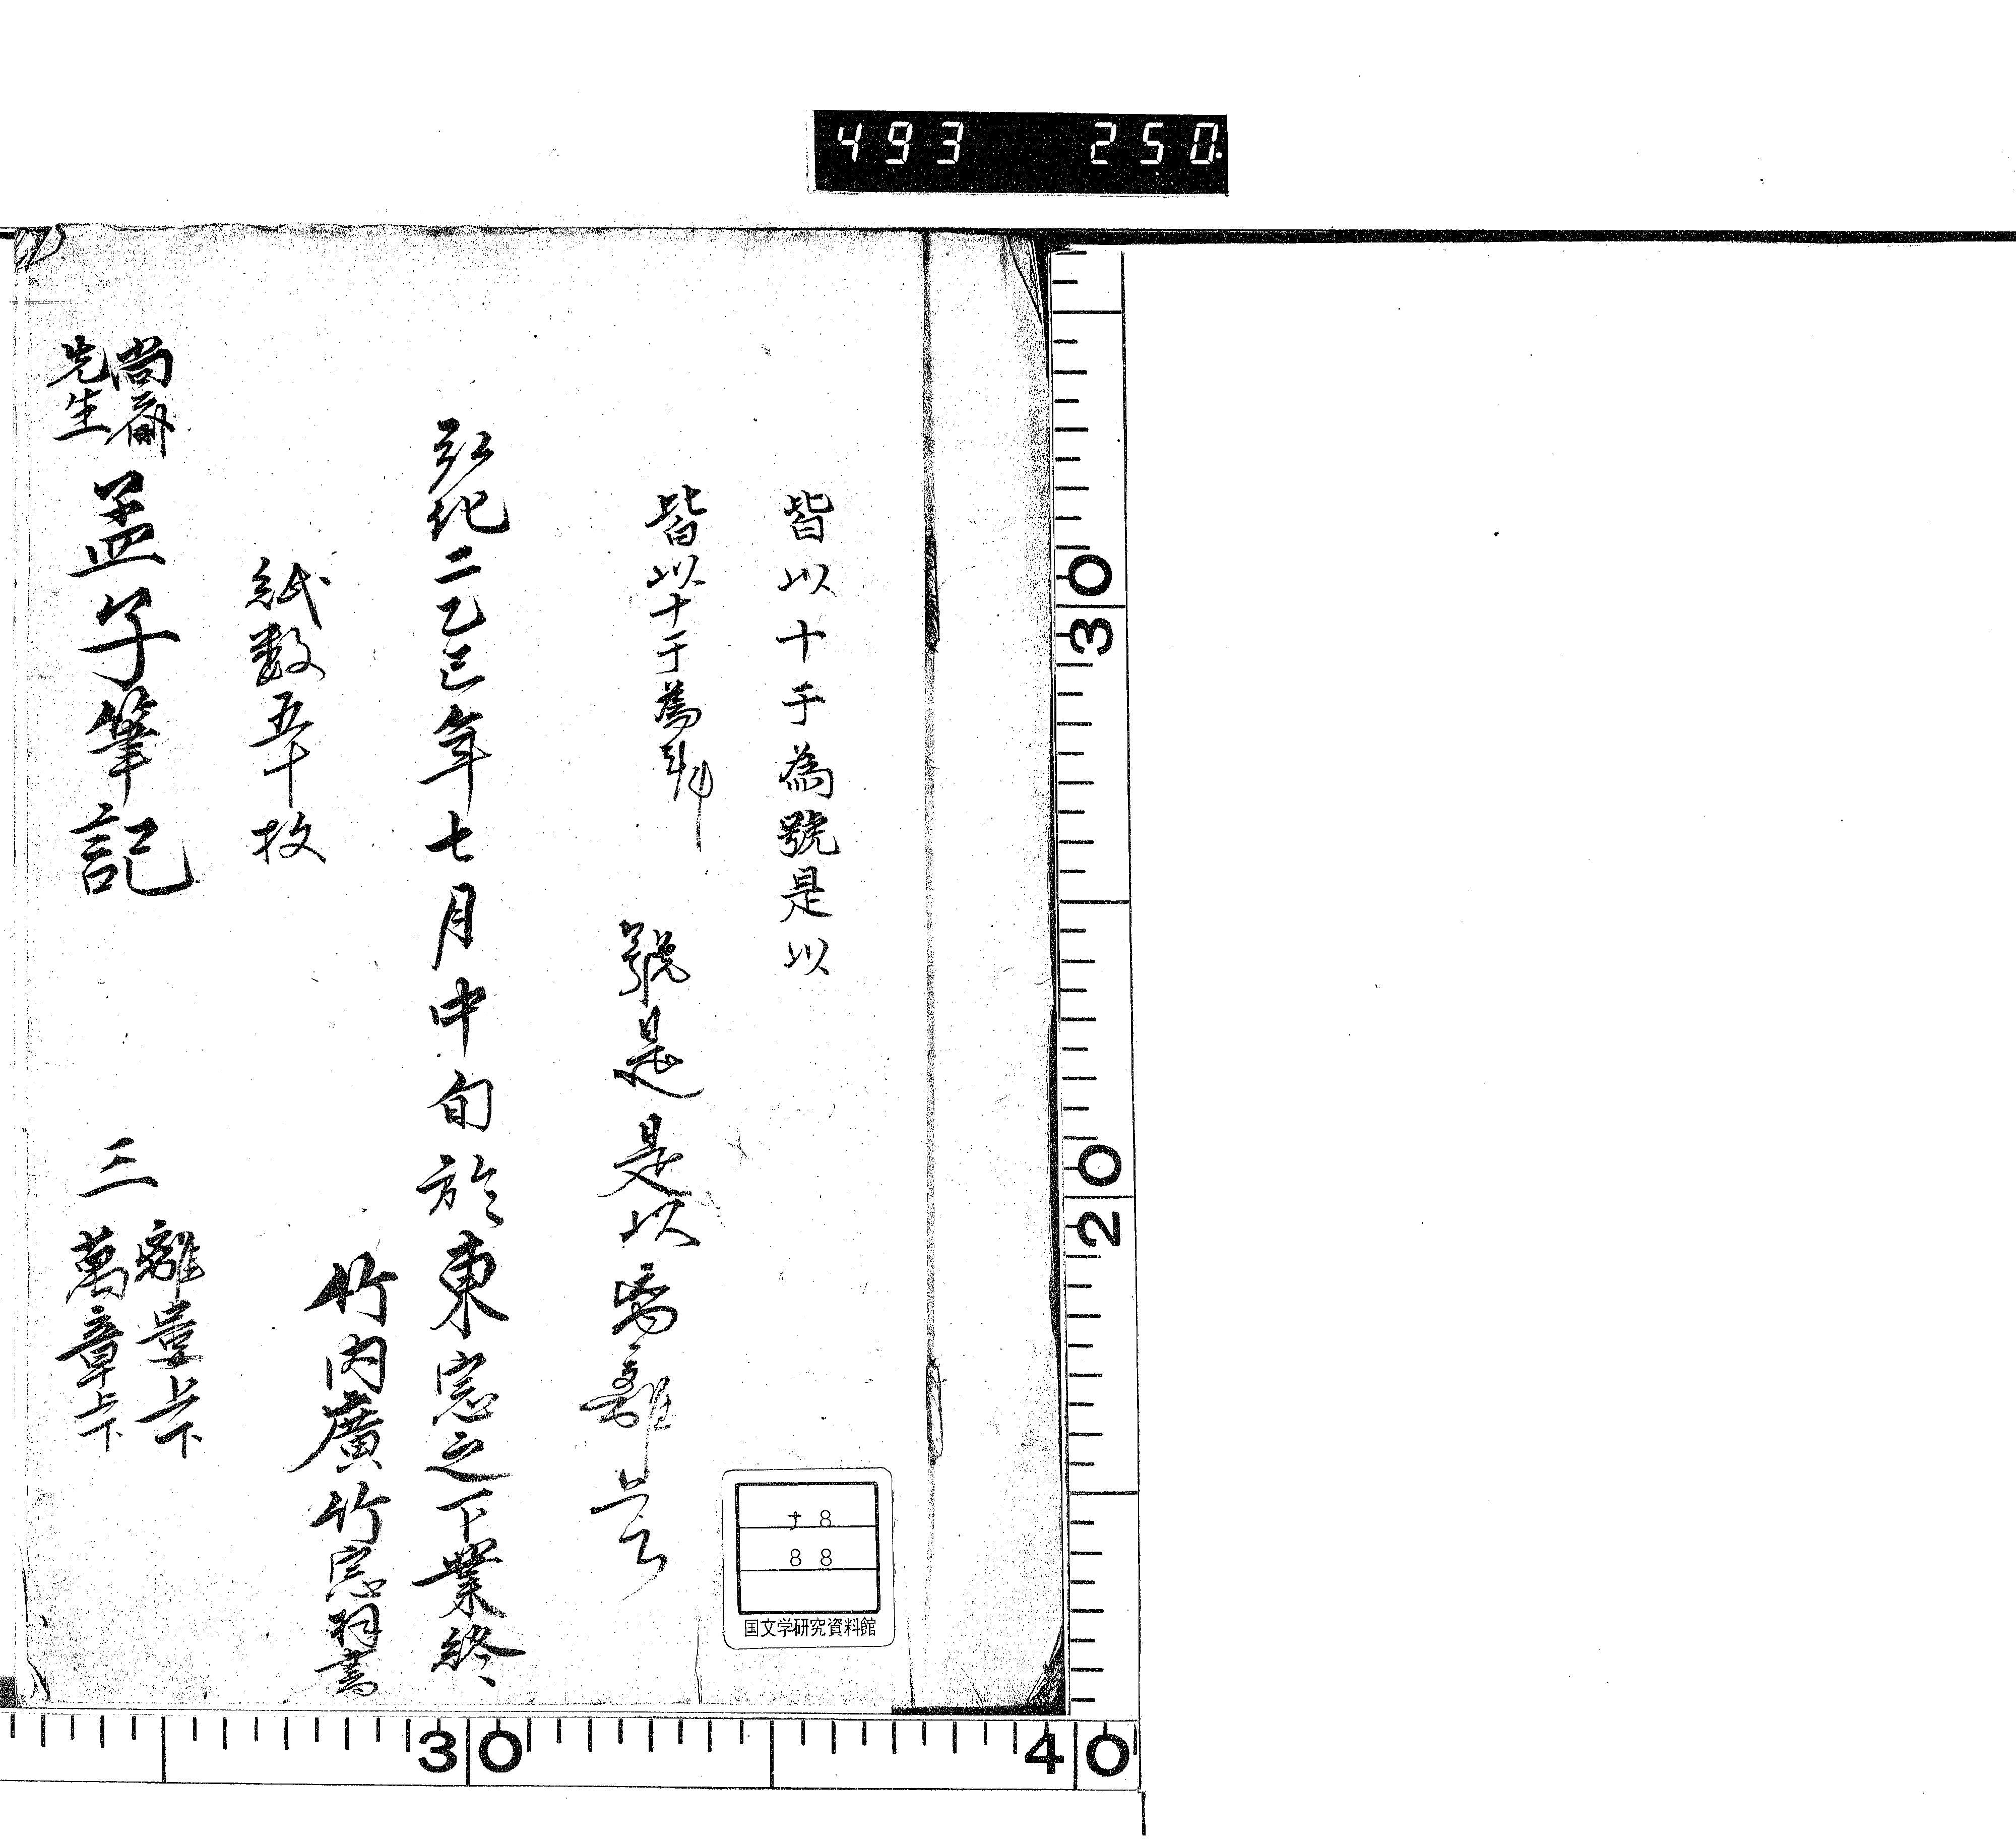 493 250
皆以十干為號是以
皆以十干為號
號是是以為離
弘化二乙巳年七月中旬於東窓之下業終
竹内廣竹窓
書
紙数五十枚
尚齋
先生
孟子筆記
三
離婁上下
萬章上下
ナ8
88
国文学研究資料館
30
20
30
40